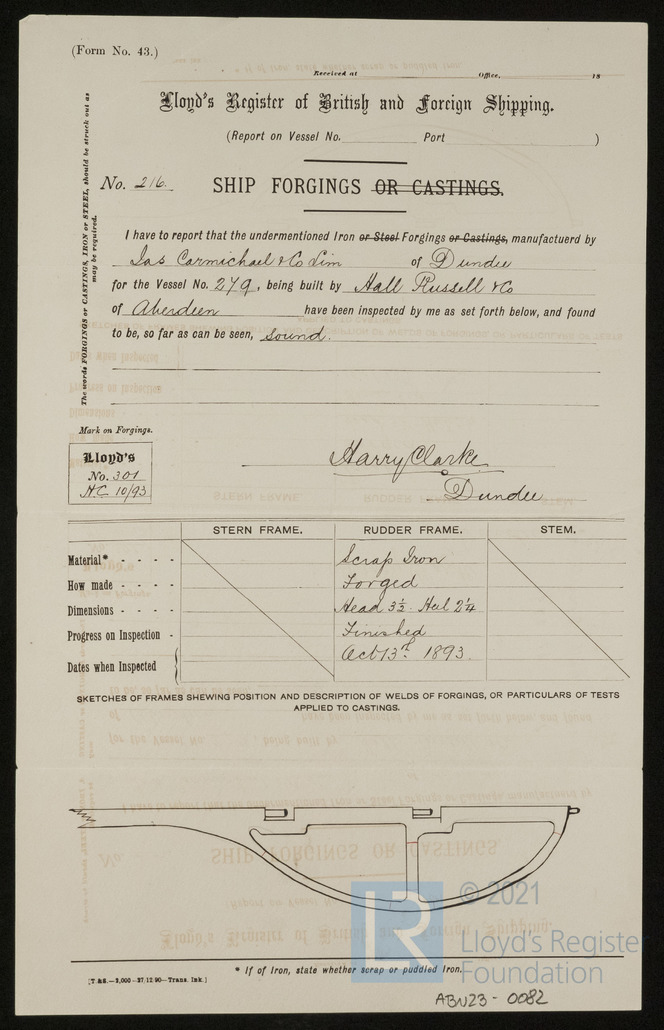 (Form No. 43.)
Received at Office, 18
Lloyd's Register of British and Foreign Shipping.
(Report on Vessel No. Port )
No. 216. SHIP FORGINGS OR CASTINGS.
The words FORGINGS or CASTINGS, IRON or STEEL, should be struck out as
may be required.
I have to report that the undermentioned Iron or Steel Forgings or Castings, manufactuerd by
Jas Carmichael & Co Lim of Dundee
for the Vessel No. 279, being built by Hall Russell & Co
of Aberdeen have been inspected by me as set forth below, and found
to be, so far as can be seen, sound.
Mark on Forgings.
Lloyd's
No. 301
H.C. 10/93
Harry Clarke
Dundee
STERN FRAME. RUDDER FRAME. STEM.
Material* - - - - Scrap Iron
How made - - - - Forged
Dimensions - - - - Head 3½. Heel 2¼
Progress on Inspection - Finished
Dates when Inspected { Oct 13th 1893.
SKETCHES OF FRAMES SHEWING POSITION AND DESCRIPTION OF WELDS OF FORGINGS, OR PARTICULARS OF TESTS
APPLIED TO CASTINGS.
© 2021
LR Lloyd's Register
Foundation
* If of Iron, state whether scrap or puddled iron.
[T & S.—3,000—27/12/90—Trans. Ink.]
ABN23-0082